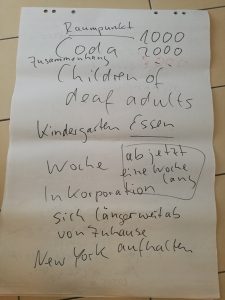 Raumpunkt
Coda 1000
2000
Zusammenhang
Children of
deaf adults
Kindergarten Essen
Woche
ab jetzt
eine Woche
lang
Inkorporation
sich länger weitab
von Zuhause
New York aufhalten